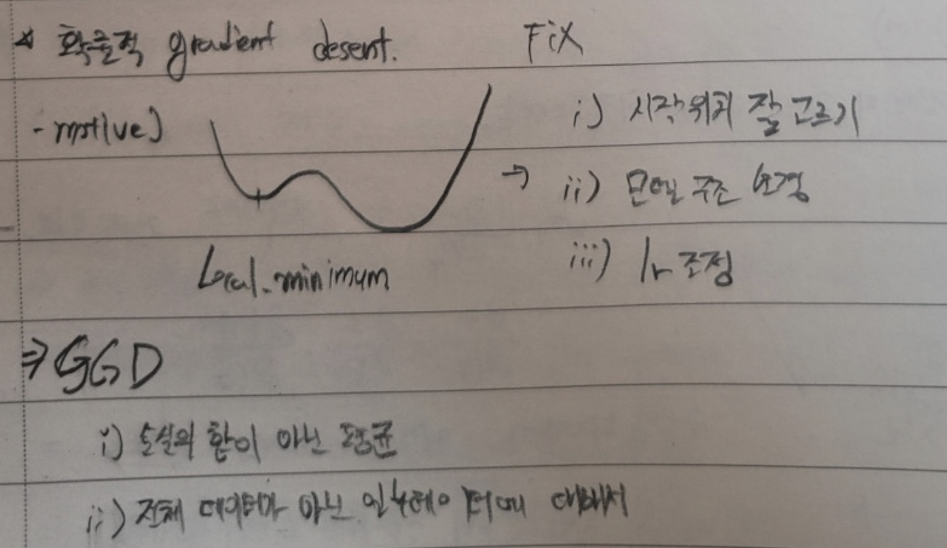 * 확률적 gradient desent.
Fix
- motive)
i) 시작위치 잘 고르기
→ ii) 모델 구조 변경
Local minimum
iii) lr 조정
⇒ SGD
i) 손실의 합이 아닌 평균
ii) 전체 데이터가 아닌 일부데이터에 대해서